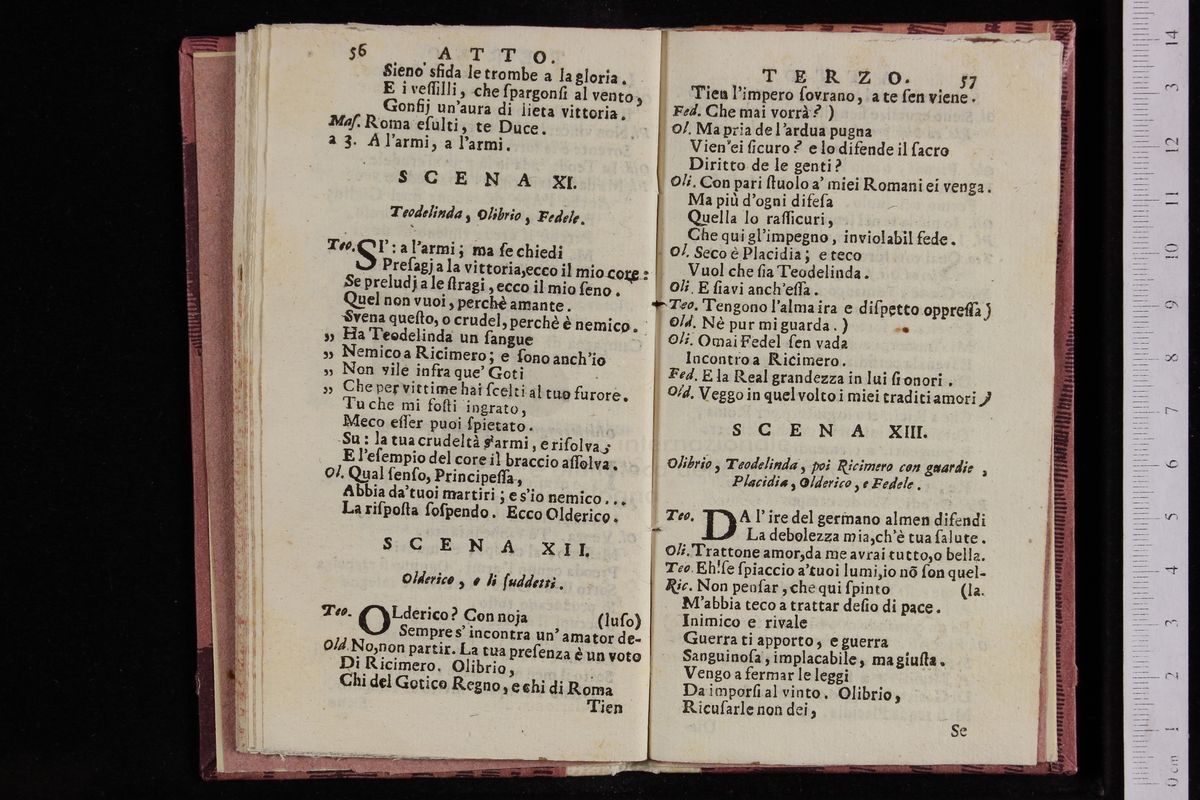 56 A T T O.
Sieno sfida le trombe a la gloria.
E i veſſilli, che ſpargonſi al vento,
Gonfij un'aura di lieta vittoria.
Maſ. Roma eſulti, te Duce.
a 3. A l'armi, a l'armi.
S C E N A XI.
Teodelinda, Olibrio, Fedele.
Teo. SI': a l'armi; ma ſe chiedi
Preſagj a la vittoria, ecco il mio core:
Se preludj a le ſtragi, ecco il mio ſeno.
Quel non vuoi, perchè amante.
Svena queſto, o crudel, perchè è nemico.
„ Ha Teodelinda un ſangue
„ Nemico a Ricimero; e ſono anch'io
„ Non vile infra que' Goti
„ Che per vittime hai ſcelti al tuo furore.
Tu che mi foſti ingrato,
Meco eſſer puoi ſpietato.
Su: la tua crudeltà s'armi, e riſolva;
E l'eſempio del core il braccio aſſolva.
Ol. Qual ſenſo, Principeſſa,
Abbia da'tuoi martiri; e s'io nemico...
La riſpoſta ſoſpendo. Ecco Olderico.
S C E N A XII.
Olderico, e li ſuddetti.
Teo. OLderico? Con noja (luſo)
Sempre s'incontra un'amator de-
Old. No, non partir. La tua preſenza è un voto
Di Ricimero. Olibrio,
Chi del Gotico Regno, e chi di Roma
Tien
T E R Z O. 57
Tien l'impero ſovrano, a te ſen viene.
Fed. Che mai vorrà? )
Ol. Ma pria de l'ardua pugna
Vien'ei ſicuro? e lo difende il ſacro
Diritto de le genti?
Oli. Con pari ſtuolo a' miei Romani ei venga.
Ma più d'ogni difeſa
Quella lo raſſicuri,
Che qui gl'impegno, inviolabil fede.
Ol. Seco è Placidia; e teco
Vuol che ſia Teodelinda.
Oli. E ſiavi anch'eſſa.
Teo. Tengono l'alma ira e diſpetto oppreſſa)
Old. Nè pur mi guarda. )
Oli. Omai Fedel ſen vada
Incontro a Ricimero.
Fed. E la Real grandezza in lui ſi onori.
Old. Veggo in quel volto i miei traditi amori )
S C E N A XIII.
Olibrio, Teodelinda, poi Ricimero con guardie,
Placidia, Olderico, e Fedele.
Teo. DA l'ire del germano almen difendi
La debolezza mia, ch'è tua ſalute.
Oli. Trattone amor, da me avrai tutto, o bella.
Teo. Eh! ſe ſpiaccio a'tuoi lumi, io nō ſon quel-
Ric. Non penſar, che qui ſpinto (la.
M'abbia teco a trattar deſio di pace.
Inimico e rivale
Guerra ti apporto, e guerra
Sanguinoſa, implacabile, ma giuſta.
Vengo a fermar le leggi
Da imporſi al vinto. Olibrio,
Ricuſarle non dei,
Se
0 cm 1 2 3 4 5 6 7 8 9 10 11 12 13 14